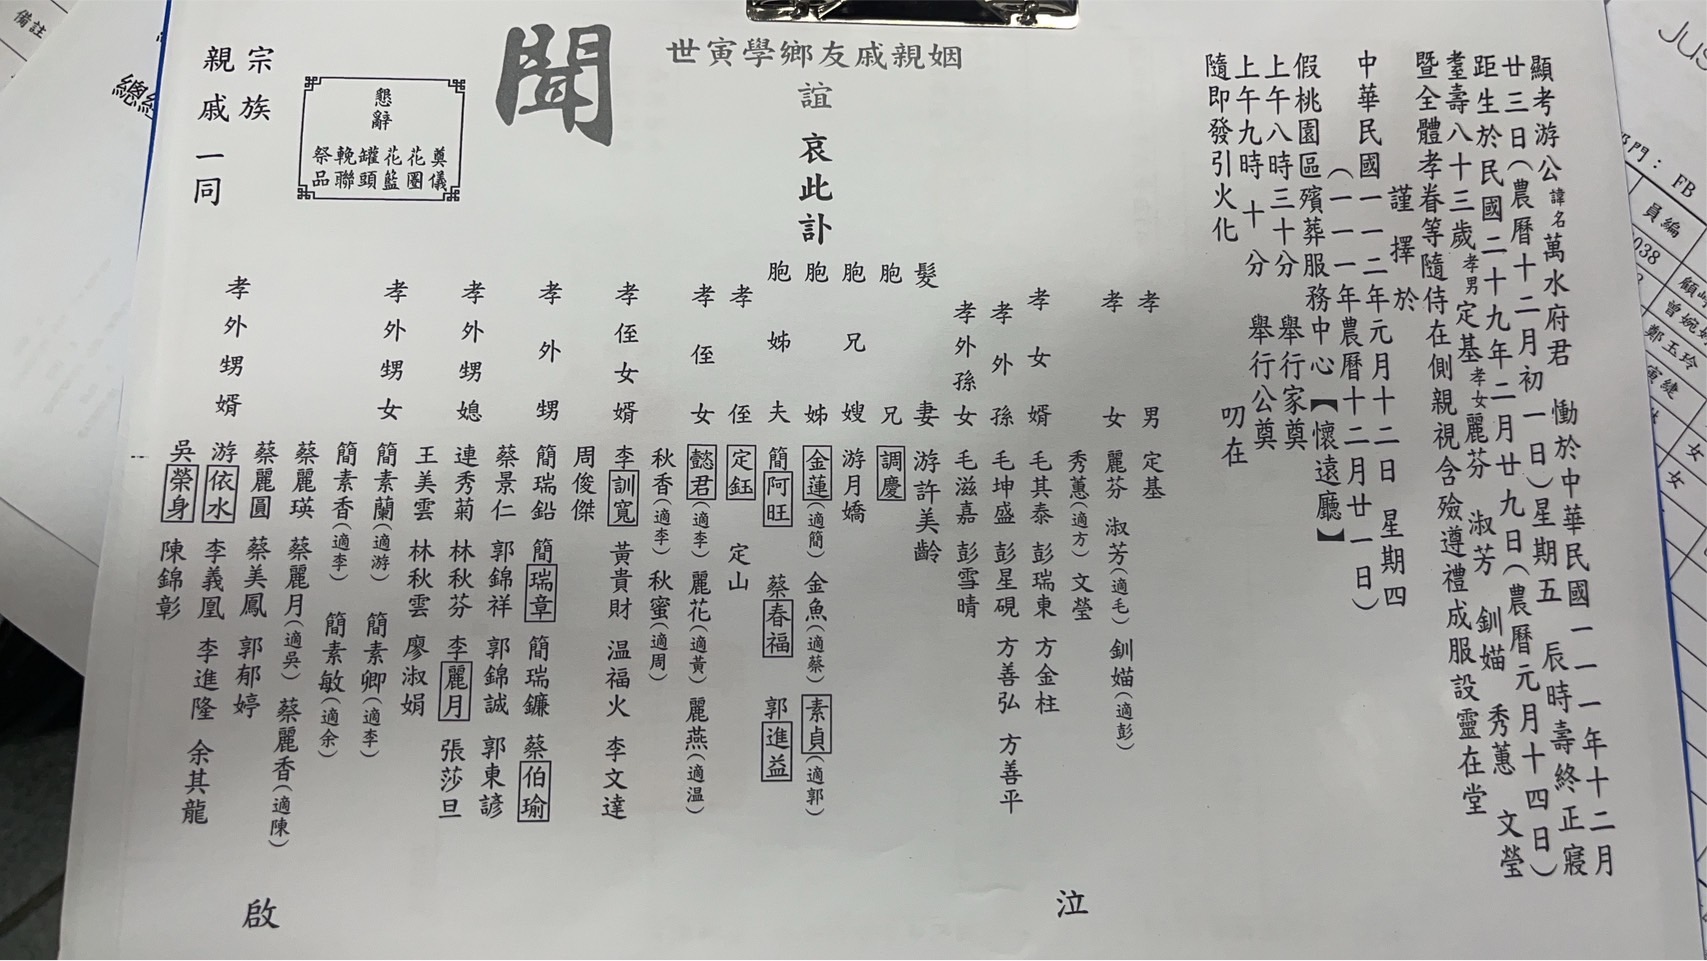 顯考游公諱名萬水府君　慟於中華民國一一一年十二月
廿三日(農曆十二月初一日)星期五　辰時壽終正寢
距生於民國二十九年二月廿九日(農曆元月十四日)
耋壽八十三歲孝男定基孝女麗芬　淑芳　釧媌　秀蕙　文瑩
暨全體孝眷等隨侍在側親視含殮遵禮成服設靈在堂
謹擇於
中華民國一一二年元月十二日　星期四
(一一一年農曆十二月廿一日)
假桃園區殯葬服務中心【懷遠廳】
上午八時三十分　舉行家奠
上午九時　十　分　舉行公奠
隨即發引火化　叨在
姻親戚友鄉學寅世
誼　哀此訃
聞
孝男　定基
孝女　麗芬　淑芳(適毛)　釧媌(適彭)
秀蕙(適方)　文瑩
孝女婿　毛其泰　彭瑞東　方金柱
孝外孫　毛坤盛　彭星硯　方善弘　方善平
孝外孫女　毛滋嘉　彭雪晴
髮妻　游許美齡
胞兄　調慶
胞兄嫂　游月嬌
胞姊　金蓮(適簡)　金魚(適蔡)　素貞(適郭)
胞姊夫　簡阿旺　蔡春福　郭進益
孝侄　定鈺　定山
孝侄女　懿君(適李)　麗花(適黃)　麗燕(適溫)
秋香(適李)　秋蜜(適周)
孝侄女婿　李訓寬　黃貴財　温福火　李文達
周俊傑
孝外甥　簡瑞鉛　簡瑞章　簡瑞鐮　蔡伯瑜
蔡景仁　郭錦祥　郭錦誠　郭東諺
孝外甥媳　連秀菊　林秋芬　李麗月　張莎旦
王美雲　林秋雲　廖淑娟
孝外甥女　簡素蘭(適游)　簡素卿(適李)
簡素香(適李)　簡素敏(適余)
蔡麗瑛　蔡麗月(適吳)　蔡麗香(適陳)
蔡麗圓　蔡美鳳　郭郁婷
孝外甥婿　游依水　李義凰　李進隆　余其龍
吳榮身　陳錦彰
泣
啟
宗族
親戚一同
懇辭
奠儀
花圈
花籃
罐頭
輓聯
祭品
備註
總
部門：FB
員編
038
曾婉
鄭玉玲
女
女
JUS